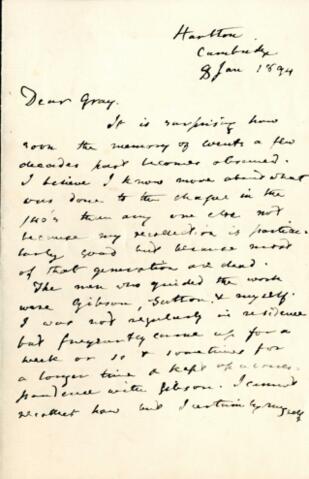 Harlton
Cambridge
8 Jan 1894
Dear Gray.
It is surprising how
soon the memory of events a few
decades past becomes obscured.
I believe I know more about what
was done to the chapel in the
than any one else not
because my recollection is particu-
larly good but because most
of that generation are dead.
The men who guided the work
were Gibson, Sutton, & myself.
I was not regularly in residence
but frequently came up for a
week or so & sometimes for
a longer time & kept up a corres-
pondence with Gibson. I cannot
recollect how but I certainly myself